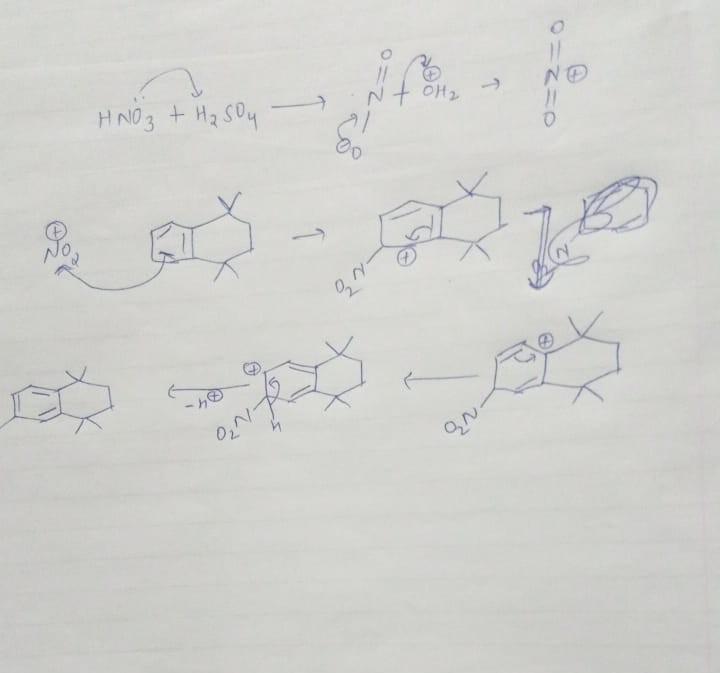 HNO3 + H2SO4 → O=N(–O⊖) – ⊕OH2 → O=N⊕=O
⊕NO2 → O2N ⊕
O2N
⊕ O2N H ← -H⊕ ← O2N ⊕